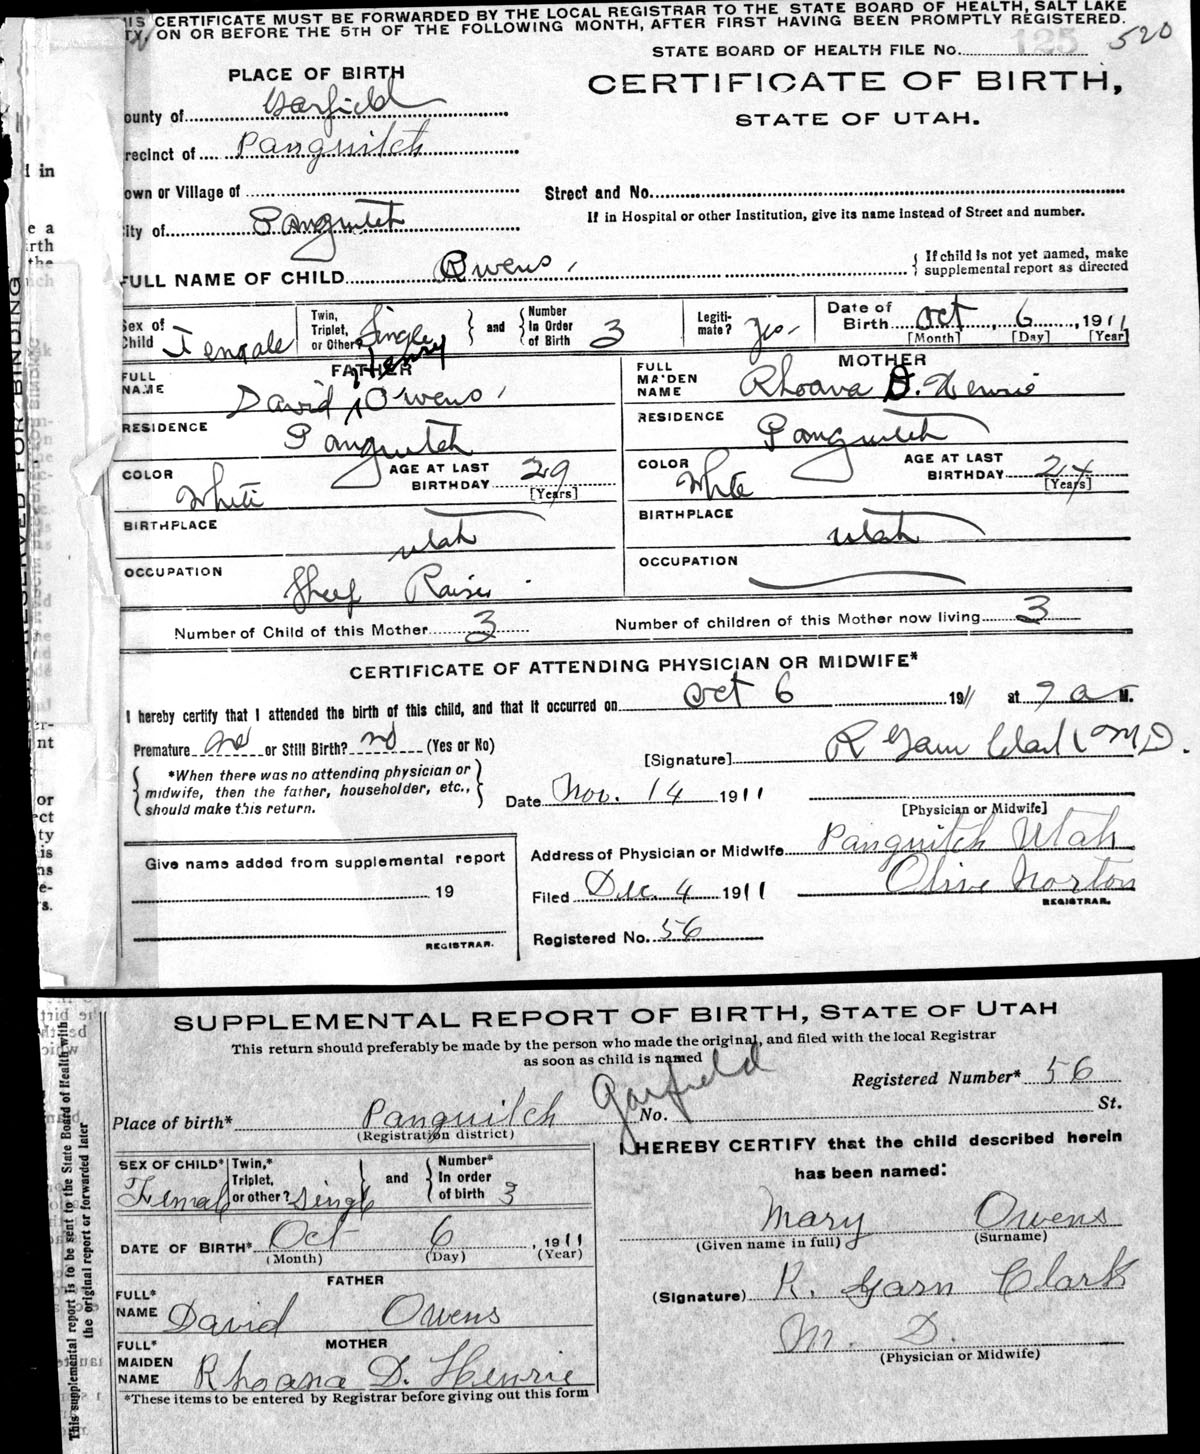 THIS CERTIFICATE MUST BE FORWARDED BY THE LOCAL REGISTRAR TO THE STATE BOARD OF HEALTH, SALT LAKE
ON OR BEFORE THE 5TH OF THE FOLLOWING MONTH, AFTER FIRST HAVING BEEN PROMPTLY REGISTERED.
STATE BOARD OF HEALTH FILE No. 125 520
PLACE OF BIRTH
CERTIFICATE OF BIRTH,
STATE OF UTAH.
ounty of Garfield
recinct of Panguitch
own or Village of
Street and No.
ity of Panguitch
If in Hospital or other Institution, give its name instead of Street and number.
FULL NAME OF CHILD Owens
If child is not yet named, make
supplemental report as directed
Sex of Child Female
Twin, Triplet, or Other? Single and Number In Order of Birth 3
Legiti-mate? Yes
Date of Birth Oct 6, 1911
[Month] [Day] [Year]
FATHER
MOTHER
FULL NAME David Henry Owens
FULL MAIDEN NAME Rhoana D. Henrie
RESIDENCE Panguitch
RESIDENCE Panguitch
COLOR White AGE AT LAST BIRTHDAY 29 [Years]
COLOR White AGE AT LAST BIRTHDAY 24 [Years]
BIRTHPLACE Utah
BIRTHPLACE Utah
OCCUPATION Sheep Raiser
OCCUPATION
Number of Child of this Mother 3 Number of children of this Mother now living 3
CERTIFICATE OF ATTENDING PHYSICIAN OR MIDWIFE*
I hereby certify that I attended the birth of this child, and that it occurred on Oct 6 1911 at 9 a M.
Premature no or Still Birth? no (Yes or No)
[Signature] R Garn Clark M D.
*When there was no attending physician or
midwife, then the father, householder, etc.,
should make this return.
Date Nov. 14 1911
[Physician or Midwife]
Give name added from supplemental report
19
REGISTRAR.
Address of Physician or Midwife Panguitch Utah
Filed Dec. 4 1911 Olive Norton
REGISTRAR.
Registered No. 56
SUPPLEMENTAL REPORT OF BIRTH, STATE OF UTAH
This return should preferably be made by the person who made the original, and filed with the local Registrar
as soon as child is named
Registered Number* 56
Garfield
Place of birth* Panguitch No. St.
(Registration district)
SEX OF CHILD* Female
Twin,* Triplet, or other? Single and Number* In order of birth 3
DATE OF BIRTH* Oct 6, 1911
(Month) (Day) (Year)
FATHER
FULL* NAME David Owens
MOTHER
FULL* MAIDEN NAME Rhoana D. Henrie
*These items to be entered by Registrar before giving out this form
I HEREBY CERTIFY that the child described herein
has been named:
Mary Owens
(Given name in full) (Surname)
(Signature) R. Garn Clark
M. D.
(Physician or Midwife)
This supplemental report is to be sent to the State Board of Health with
the original report or forwarded later